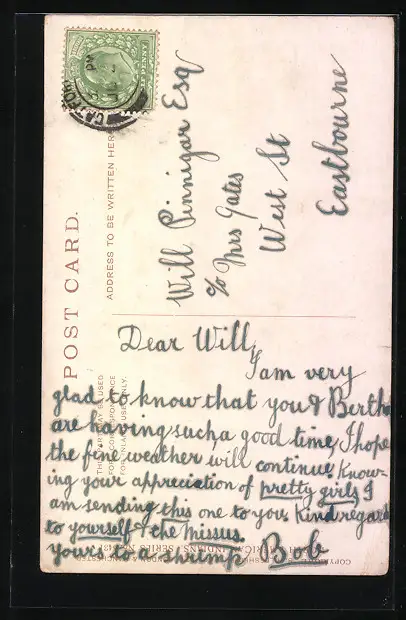 POST CARD.
ADDRESS TO BE WRITTEN HERE
THIS SPACE MAY BE USED
FOR CORRESPONDENCE
FOR INLAND USE ONLY.
PENNY
Will Pinnigar Esq
c/o Mrs Gates
West St
Eastbourne
Dear Will,
I am very
glad to know that you & Bertha
are having such a good time, I hope
the fine weather will continue. Know-
ing your appreciation of pretty girls I
am sending this one to you. Kind regards
to yourself & the missus.
yours to a shrimp Bob